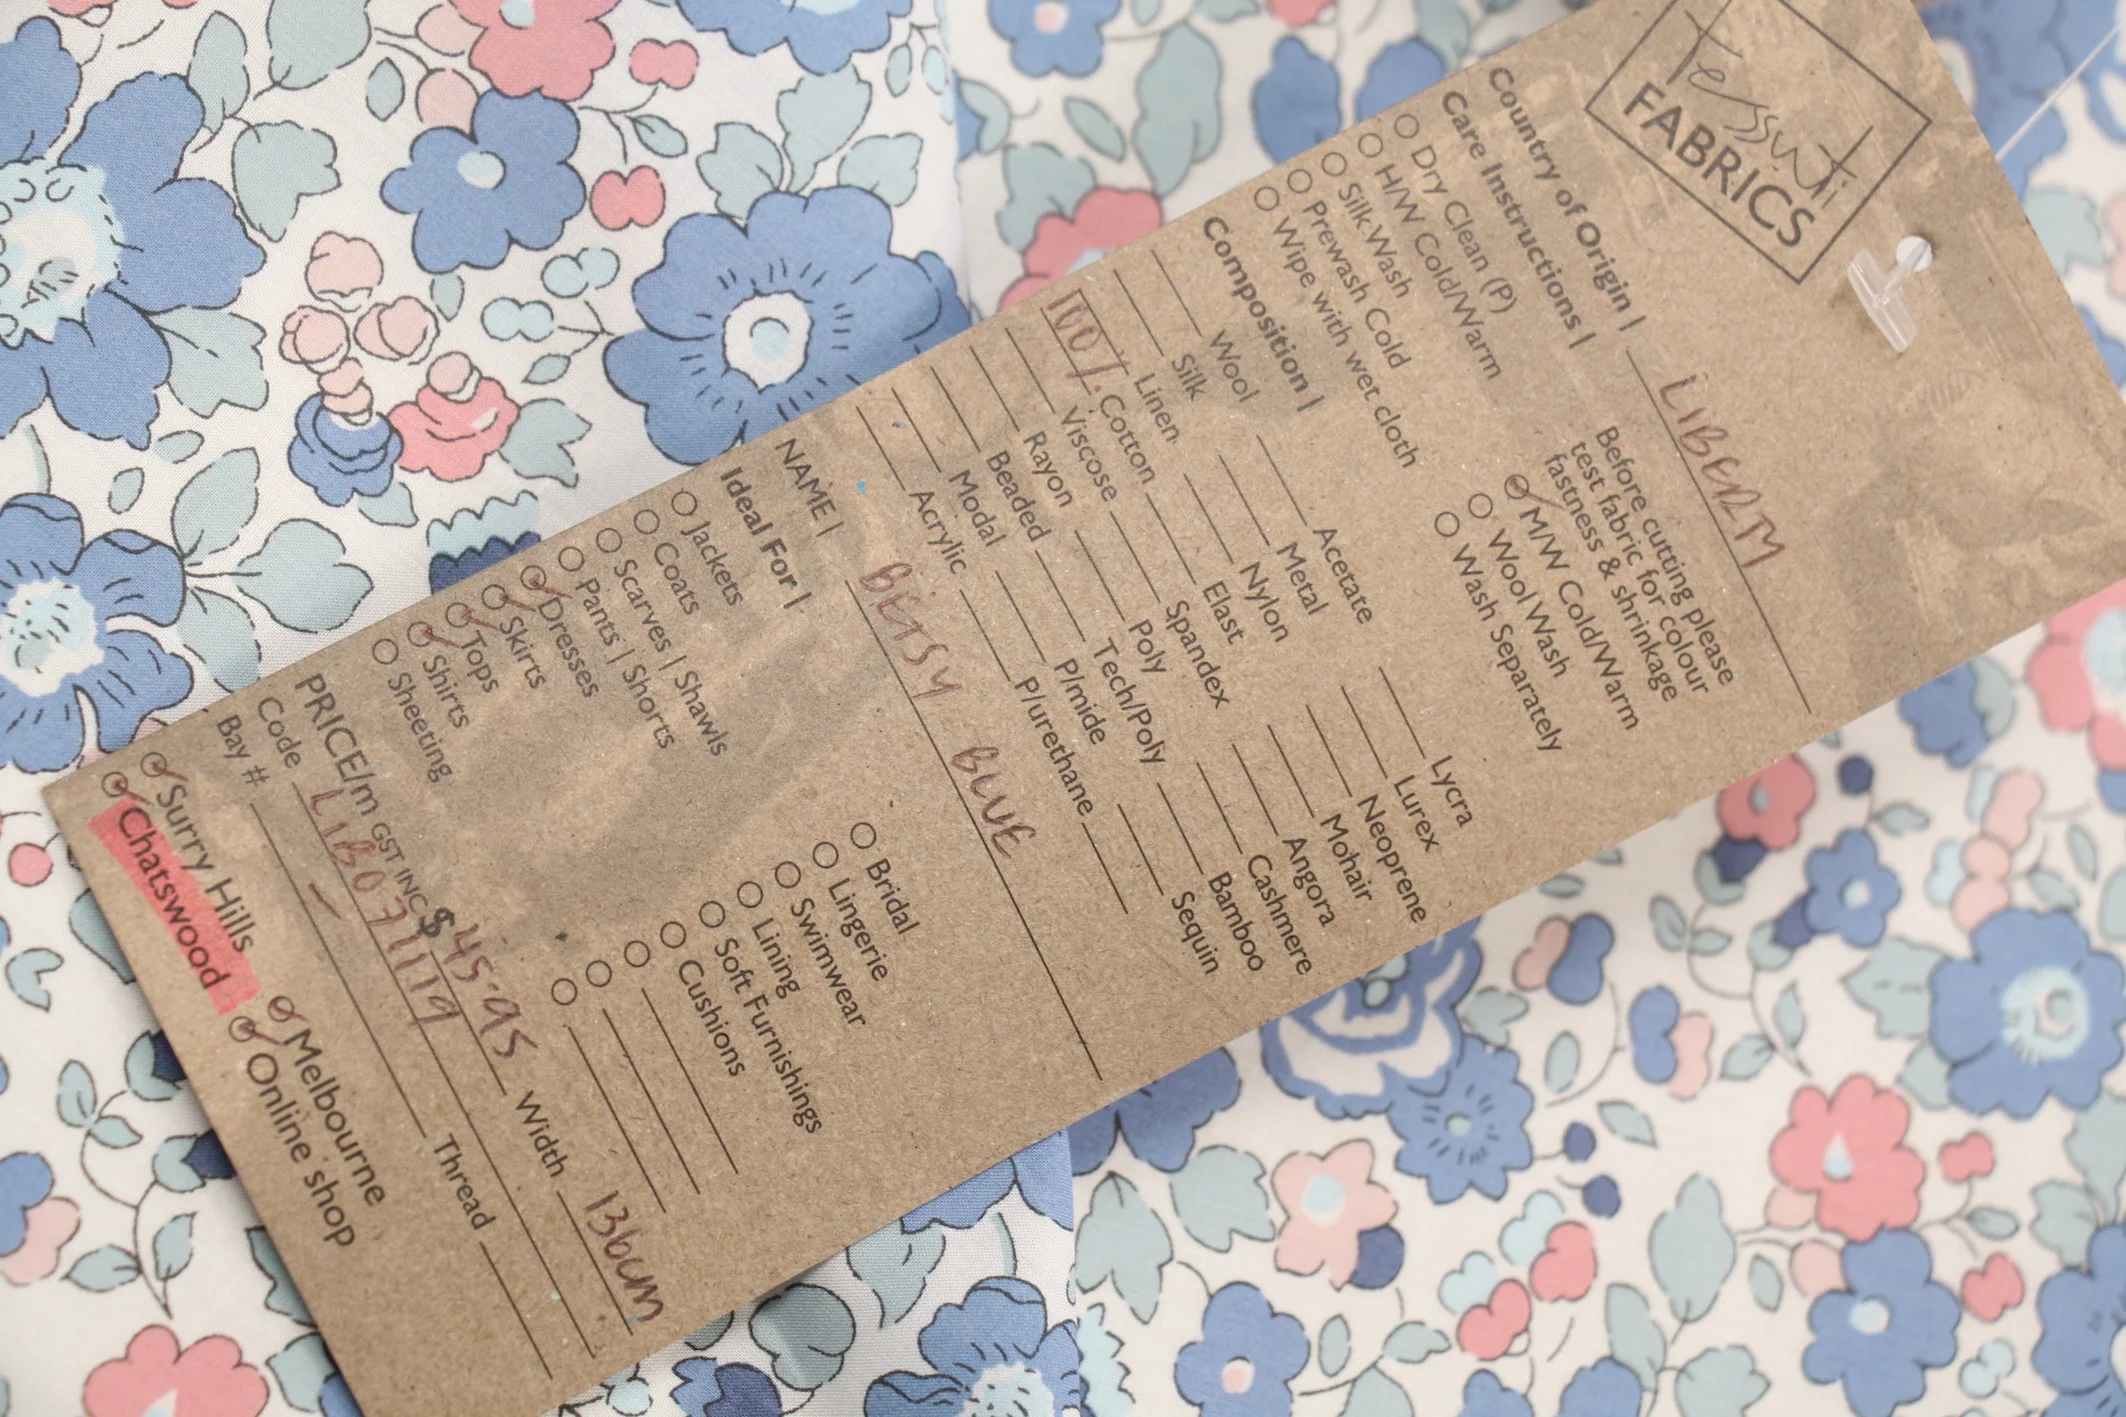 Tessuti
FABRICS
Country of Origin | LIBERTY
Care Instructions | Before cutting please
test fabric for colour
fastness & shrinkage
Dry Clean (P) M/W Cold/Warm
H/W Cold/Warm Wool Wash
Silk Wash Wash Separately
Prewash Cold
Wipe with wet cloth
Composition |
Wool Acetate Lycra
Silk Metal Lurex
Linen Nylon Neoprene
100% Cotton Elast Mohair
Viscose Spandex Angora
Rayon Poly Cashmere
Beaded Tech/Poly Bamboo
Modal P/mide Sequin
Acrylic P/urethane
NAME | BETSY BLUE
Ideal For |
Jackets Bridal
Coats Lingerie
Scarves | Shawls Swimwear
Pants | Shorts Lining
Dresses Soft Furnishings
Skirts Cushions
Tops
Shirts
Sheeting
PRICE/m GST INC $45.95 Width 136cm
Code LIB071119
Bay # - Thread
Surry Hills Melbourne
Chatswood Online shop